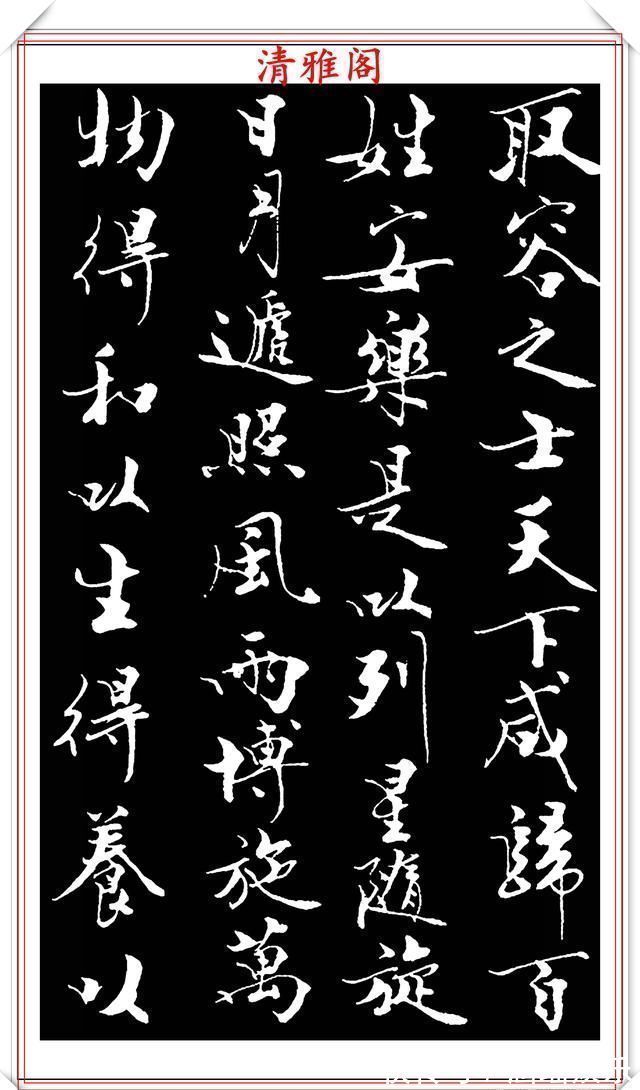 清雅阁
取容之士天下咸歸百
姓安樂是以列星隨旋
日月遞照風雨博施萬
物得和以生得養以